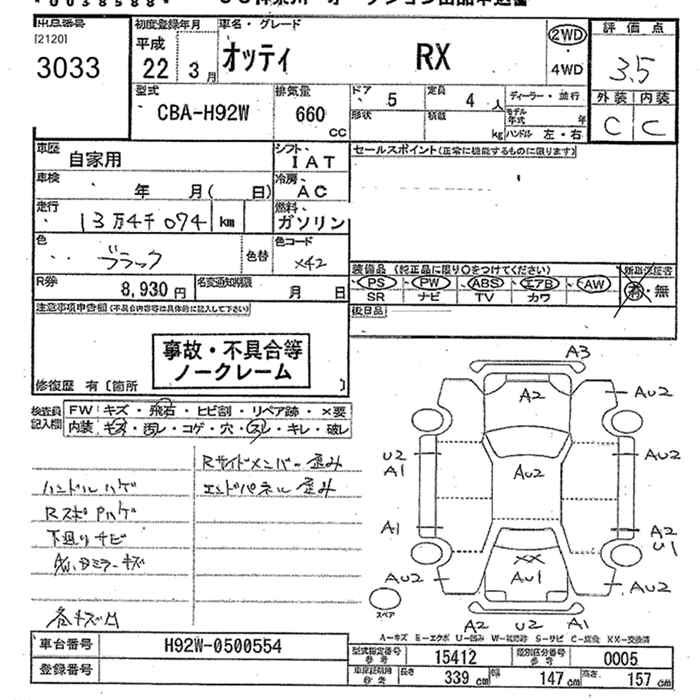 *0038588*
[2120]
3033
初度登録年月
平成
22年 3月
車名・グレード
オッティ RX
2WD
4WD
評価点
3.5
外装 内装
C C
型式
CBA-H92W
排気量
660 CC
ドア 5
定員 4人
形状
積載 kg
ディーラー・並行
モデル年式 年
ハンドル 左・右
車歴
自家用
シフト
IAT
セールスポイント(正常に機能するものに限ります)
車検
年 月( 日)
冷房
AC
走行
13万4千074 km
燃料
ガソリン
色
ブラック
色替
色コード
X42
R券
8,930円
名変通知期限
月 日
装備品 (純正品に限り○をつけてください)
PS PW ABS エアB AW
SR ナビ TV カワ
新車保証書
有・無
後日品
注意事項申告欄(不具合内容等は具体的に記入して下さい)
事故・不具合等
ノークレーム
修復歴 有〔箇所 〕
検査員
記入欄
FW キズ・飛石・ヒビ割・リペア跡・×要
内装 キズ・汚レ・コゲ・穴・スレ・キレ・破レ
Rサイドメンバー歪み
エンドパネル歪み
ハンドルハゲ
下廻りサビ
A3
A2
AU2
AU2
U2
A1
AU2
AU2
A1
A2
U1
XX
AU1
AU2
AU2
スペア
A2 U2 A1
A-キズ E-エクボ U-凹み W-波跡 S-サビ C-腐食 XX-交換済
車台番号
H92W-0500554
型式指定番号
参考
15412
類別区分番号
参考
0005
登録番号
参考
長さ 339cm
幅 147cm
高さ 157cm